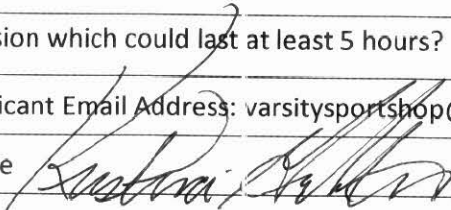 sion which could last at least 5 hours?
icant Email Address: varsitysportshop@
e